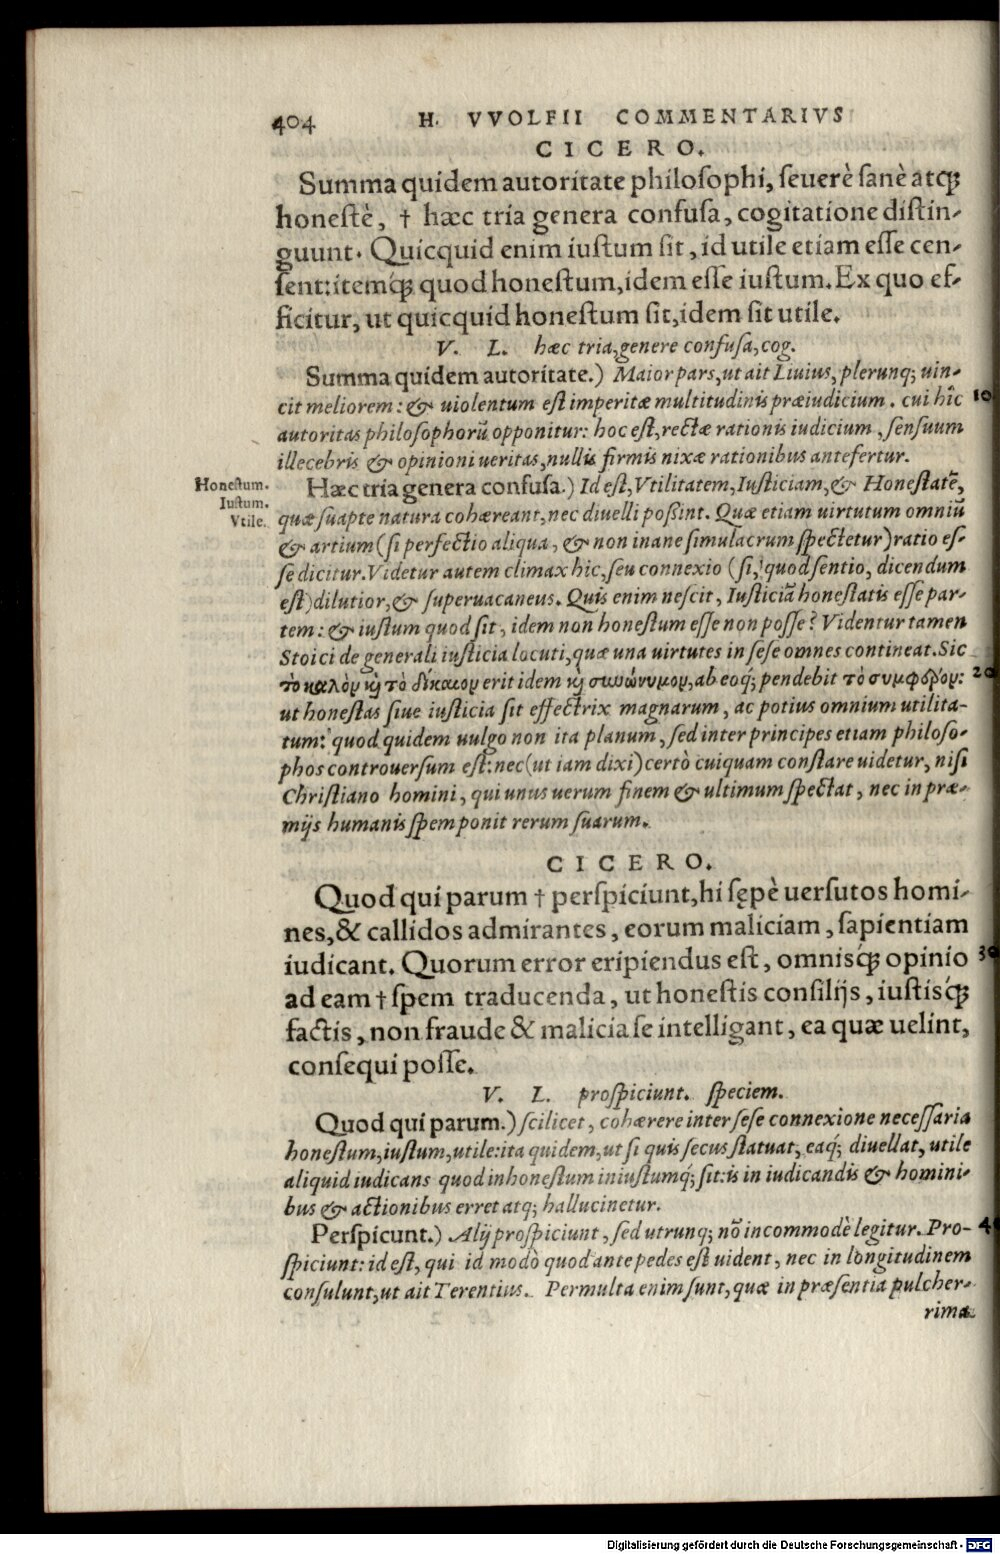 404 H. VVOLFII COMMENTARIVS
CICERO.
Summa quidem autoritate philosophi, seuerè sanè atq́;
honestè, † hæc tria genera confusa, cogitatione distin-
guunt. Quicquid enim iustum sit, id utile etiam esse cen-
sent: itemq́; quod honestum, idem esse iustum. Ex quo ef-
ficitur, ut quicquid honestum sit, idem sit utile.
V. L. hæc tria, genere confusa, cog.
Summa quidem autoritate.) Maior pars, ut ait Liuius, plerunq; uin-
cit meliorem: & uiolentum est imperitæ multitudinis præiudicium. cui hîc 10
autoritas philosophorũ opponitur: hoc est, rectæ rationis iudicium, sensuum
illecebris & opinioni ueritas, nullis firmis nixæ rationibus antefertur.
Honestum.
Iustum.
Vtile.
Hæc tria genera confusa.) Id est, Vtilitatem, Iusticiam, & Honestatẽ,
quæ suapte natura cohæreant, nec diuelli possint. Quæ etiam uirtutum omniũ
& artium (si perfectio aliqua, & non inane simulacrum spectetur) ratio es-
se dicitur. Videtur autem climax hic, seu connexio (si, quod sentio, dicendum
est) dilutior, & superuacaneus. Quis enim nescit, Iusticiã honestatis esse par-
tem: & iustum quod sit, idem non honestum esse non posse? Videntur tamen
Stoici de generali iusticia locuti, quæ una uirtutes in sese omnes contineat. Sic
τὸ καλὸν κỳ τὸ δίκαιον erit idem κỳ συνώνυμον, ab eoq́; pendebit τὸ συμφέρον: 20
ut honestas siue iusticia sit effectrix magnarum, ac potius omnium utilita-
tum: quod quidem uulgo non ita planum, sed inter principes etiam philoso-
phos controuersum est: nec (ut iam dixi) certò cuiquam constare uidetur, nisi
Christiano homini, qui unus uerum finem & ultimum spectat, nec in præ-
mijs humanis spem ponit rerum suarum.
CICERO.
Quod qui parum † perspiciunt, hi sępè uersutos homi-
nes, & callidos admirantes, eorum maliciam, sapientiam
iudicant. Quorum error eripiendus est, omnisq́; opinio 30
ad eam † spem traducenda, ut honestis consilijs, iustisq́;
factis, non fraude & malicia se intelligant, ea quæ uelint,
consequi posse.
V. L. prospiciunt. speciem.
Quod qui parum.) scilicet, cohærere inter sese connexione necessaria
honestum, iustum, utile: ita quidem, ut si quis secus statuat, eaq́; diuellat, utile
aliquid iudicans quod inhonestum iniustumq́; sit: is in iudicandis & homini-
bus & actionibus erret atq; hallucinetur.
Perspicunt.) Alij prospiciunt, sed utrunq; nõ incommodè legitur. Pro- 4
spiciunt: id est, qui id modò quod ante pedes est uident, nec in longitudinem
consulunt, ut ait Terentius. Permulta enim sunt, quæ in præsentia pulcher-
rima
Digitalisierung gefördert durch die Deutsche Forschungsgemeinschaft - DFG